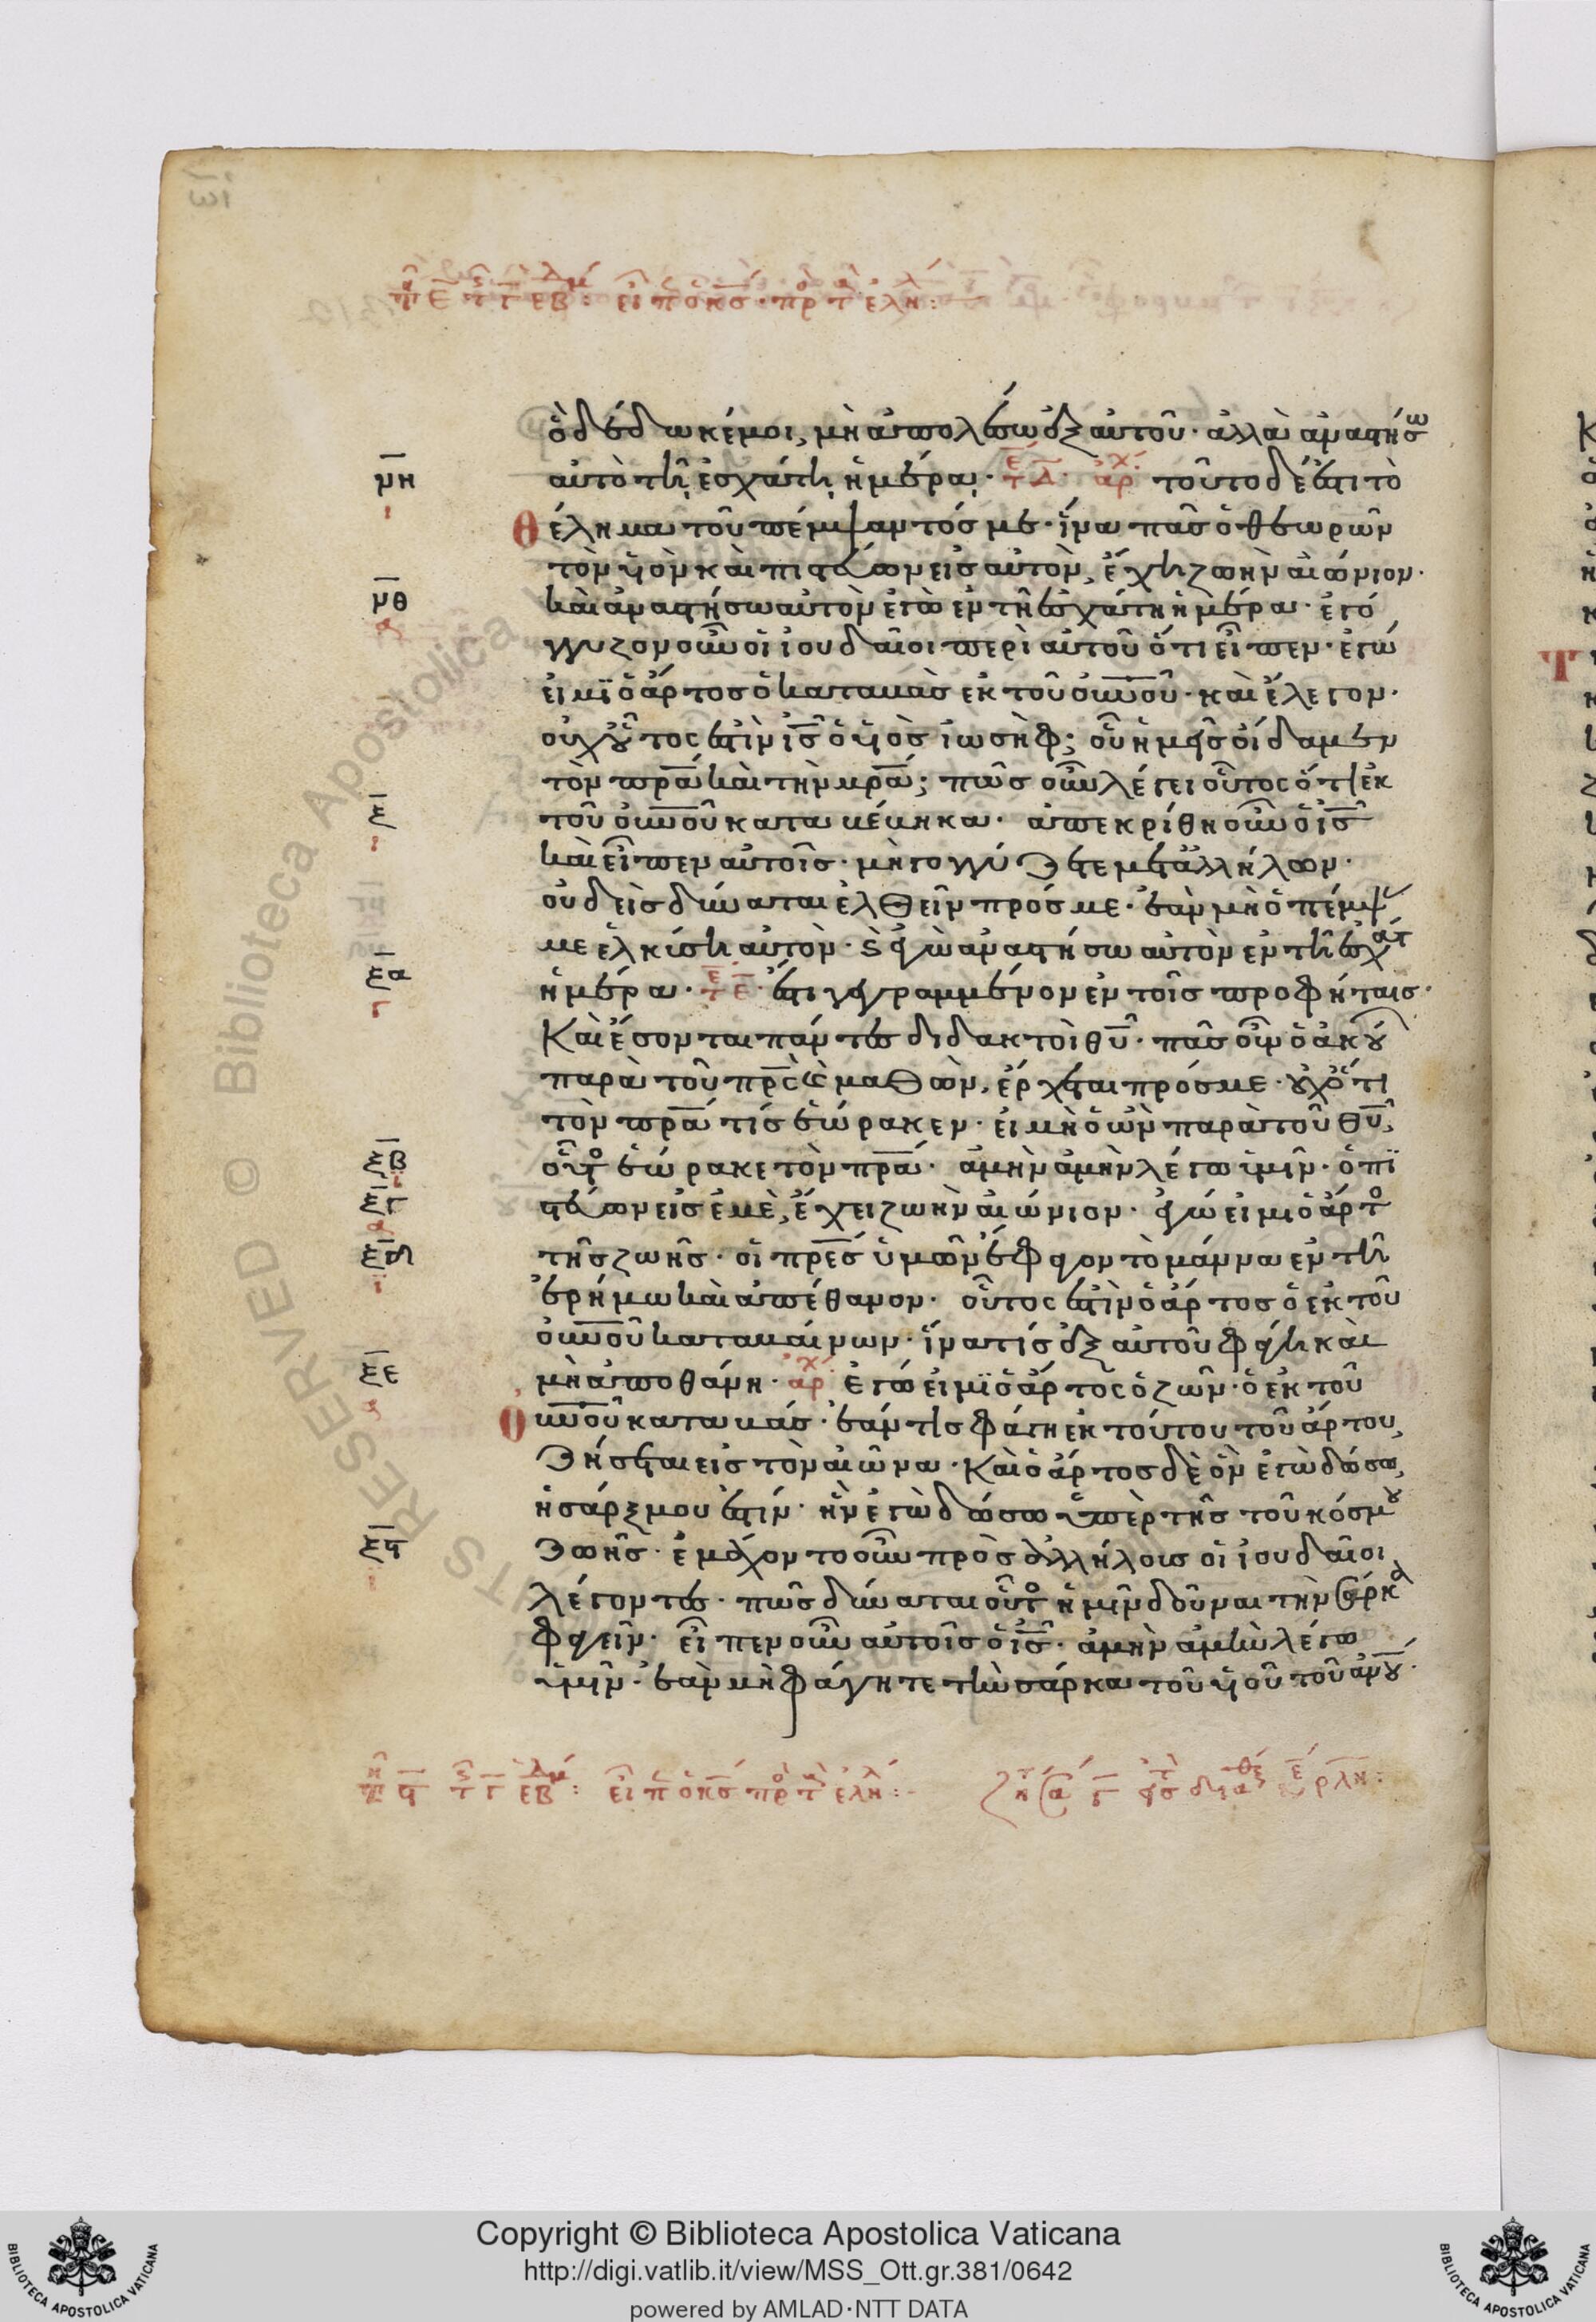 ὃ δέδωκέ μοι, μὴ ἀπολέσω ἐξ αὐτοῦ· ἀλλὰ ἀναστήσω
αὐτὸ τῇ ἐσχάτῃ ἡμέρᾳ· τοῦτο δέ ἐστι τὸ
θέλημα τοῦ πέμψαντός με· ἵνα πᾶς ὁ θεωρῶν
τὸν υἱὸν καὶ πιστεύων εἰς αὐτὸν, ἔχῃ ζωὴν αἰώνιον·
καὶ ἀναστήσω αὐτὸν ἐγὼ ἐν τῇ ἐσχάτη ἡμέρα· ἐγό
γγυζον οὖν οἱ ἰουδαῖοι περὶ αὐτοῦ ὅτι εἶπεν· ἐγώ
εἰμϊ ὁ ἄρτος ὁ καταβὰς ἐκ τοῦ οὐνοῦ· καὶ ἔλεγον·
οὐχ οὗτος ἐστὶν ἰς ὁ υἱὸς ἰωσὴφ; οὗ ἡμεῖς οἴδαμεν
τὸν πρα καὶ τὴν μρα; πῶς οὖν λέγει οὗτος ὅτι ἐκ
τοῦ οὐνοῦ καταβέβηκα· ἀπεκρίθη οὖν ὁ ἰς
καὶ εἶπεν αὐτοῖς· μὴ γογγύζετε μετἀλλήλων·
οὐδεὶς δύναται ἐλθεῖν πρός με· ἐὰν μὴ ὁ πέμψ
με ἑλκύσῃ αὐτὸν· καὶ ἐγὼ ἀναστήσω αὐτὸν ἐν τῇ ἐσχάτ
ἡμέρα· ἔστι γεγραμμένον ἐν τοῖς προφήταις·
Καὶ ἔσονται πάντες διδακτοὶ θυ· πᾶς οὖν ὁ ἀκού
παρὰ τοῦ πρς καὶ μαθὼν, ἔρχεται πρός με· οὐχ ὅτι
τὸν πρα τίς ἑώρακεν· εἰ μὴ ὁ ὢν παρὰ τοῦ θυ,
οὗτος ἑώρακε τὸν πρα· ἀμὴν ἀμὴν λέγω ὑμῖν· ὁ πι
στεύων εἰς ἐμὲ, ἔχει ζωὴν αἰώνιον· ἐγώ εἰμι ὁ ἄρτος
τῆς ζωῆς· οἱ πρες ὑμῶν ἔφαγον τὸ μάννα ἐν τῇ
ἐρήμω καὶ ἀπέθανον· οὗτος ἐστὶν ὁ ἄρτος ὁ ἐκ τοῦ
οὐνοῦ καταβαίνων· ἵνα τίς ἐξ αὐτοῦ φάγῃ καὶ
μὴ ἀποθάνη· ἐγώ εἰμϊ ὁ ἄρτος ὁ ζῶν· ὁ ἐκ τοῦ
οὐνοῦ καταβάς· ἐάν τις φάγη ἐκ τούτου τοῦ ἄρτου,
ζήσεται εἰς τὸν αἰῶνα· Καὶ ὁ ἄρτος δὲ ὃν ἐγὼ δώσω,
ἡ σάρξ μου ἐστίν· ἣν ἐγὼ δώσω ὑπὲρ τῆς τοῦ κόσμου
ζωῆς· ἐμάχοντο οὖν πρὸς ἀλλήλους οἱ ἰουδαῖοι
λέγοντες· πῶς δύναται οὗτος ἡμῖν δοῦναι τὴν σάρκα
φαγεῖν· εἶπεν οὖν αὐτοῖς ὁ ἰς· ἀμὴν ἀμὴν λέγω
ὑμῖν· ἐὰν μὴ φάγητε τὴν σάρκα τοῦ υἱοῦ τοῦ ἀνου·
νη
νθ
ξ
ξα
ξβ
ξγ
ξδ
ξε
ξϛ
Copyright © Biblioteca Apostolica Vaticana
http://digi.vatlib.it/view/MSS_Ott.gr.381/0642
powered by AMLAD·NTT DATA